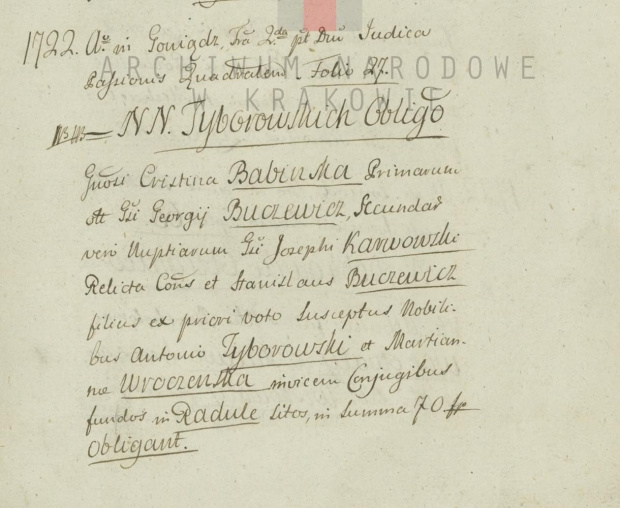 1722. Ao in Goniądz, Fra 2da pt Dnū Judica
Passionis Quadralem. Folio 27.
ARCHIWUM NARODOWE
W KRAKOWIE
NN. Tyborowskich Obligo
Gnosi Cristina Babinska Primarum
At Gsi Georgij Buczewicz, Secundar
vero Nuptiarum Gsi Josephi Karwowski
Relicta Cons et Stanislaus Buczewicz
filius ex priori voto Susceptus Nobili-
bus Antonio Tyborowski et Martian-
næ Wroczenska invicem Conjugibus
fundos in Radule Sitos, in Summa 70 fp
Obligant.